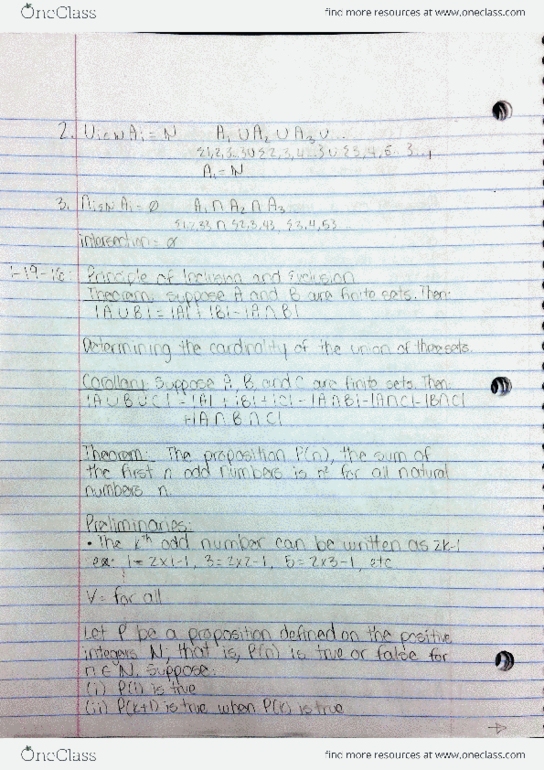 OneClass
find more resources at www.oneclass.com
2. ∪i∈N Ai = N A₁ ∪ A₂ ∪ A₃ ∪ ...
{1,2,3} ∪ {2,3,4} ∪ {3,4,5}
Ai = N
3. ∩i∈N Ai = ∅ A₁ ∩ A₂ ∩ A₃
{1,2,3} ∩ {2,3,4}, {3,4,5}
intersection = ∅
1-19-18: Principle of Inclusion and Exclusion
Theorem: Suppose A and B are finite sets. Then:
|A ∪ B| = |A| + |B| - |A ∩ B|
Determining the cardinality of the union of three sets.
Corollary: Suppose A, B, and C are finite sets. Then:
|A ∪ B ∪ C| = |A| + |B| + |C| - |A ∩ B| - |A ∩ C| - |B ∩ C|
+ |A ∩ B ∩ C|
Theorem: The proposition P(n), the sum of
the first n odd numbers is n² for all natural
numbers n.
Preliminaries:
• The kth odd number can be written as 2k-1
ex: 1 = 2x1-1, 3 = 2x2-1, 5 = 2x3-1, etc
∀ = for all
Let P be a proposition defined on the positive
integers N; that is, P(n) is true or false for
n ∈ N. Suppose:
(i) P(1) is true
(ii) P(k+1) is true when P(k) is true
→
OneClass
find more resources at www.oneclass.com